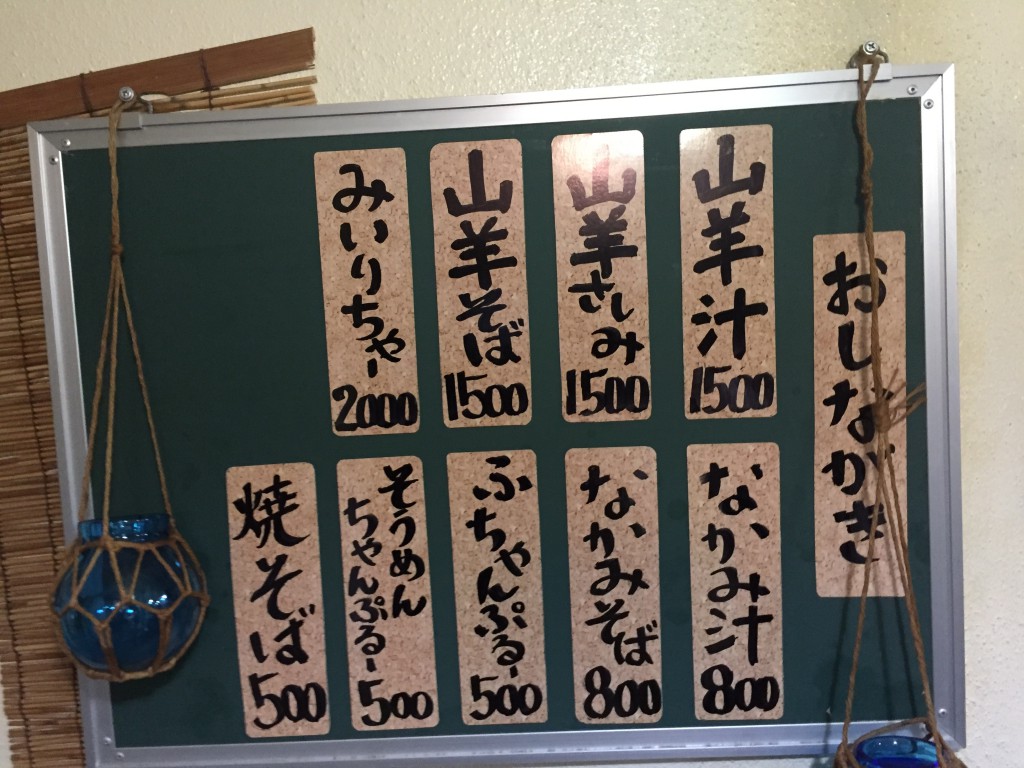 おしながき
山羊汁
1500
山羊さしみ
1500
山羊そば
1500
みいりちゃー
2000
なかみ汁
800
なかみそば
800
ふちゃんぷるー
500
そうめん
ちゃんぷるー
500
焼そば
500